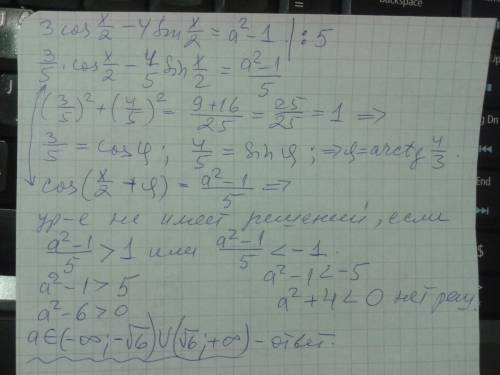 3 cos x/2 - 4 sin x/2 = a² - 1 | : 5
3/5 · cos x/2 - 4/5 sin x/2 = (a² - 1)/5
(3/5)² + (4/5)² = (9+16)/25 = 25/25 = 1 =>
3/5 = cos φ ; 4/5 = sin φ ; => φ = arctg 4/3.
cos(x/2 + φ) = (a² - 1)/5 =>
ур-е не имеет решений, если
(a² - 1)/5 > 1 или (a² - 1)/5 < -1.
a² - 1 > 5 a² - 1 < -5
a² - 6 > 0 a² + 4 < 0 нет реш.
a ∈ (-∞; -√6) ∪ (√6; +∞) - ответ.
Backspace